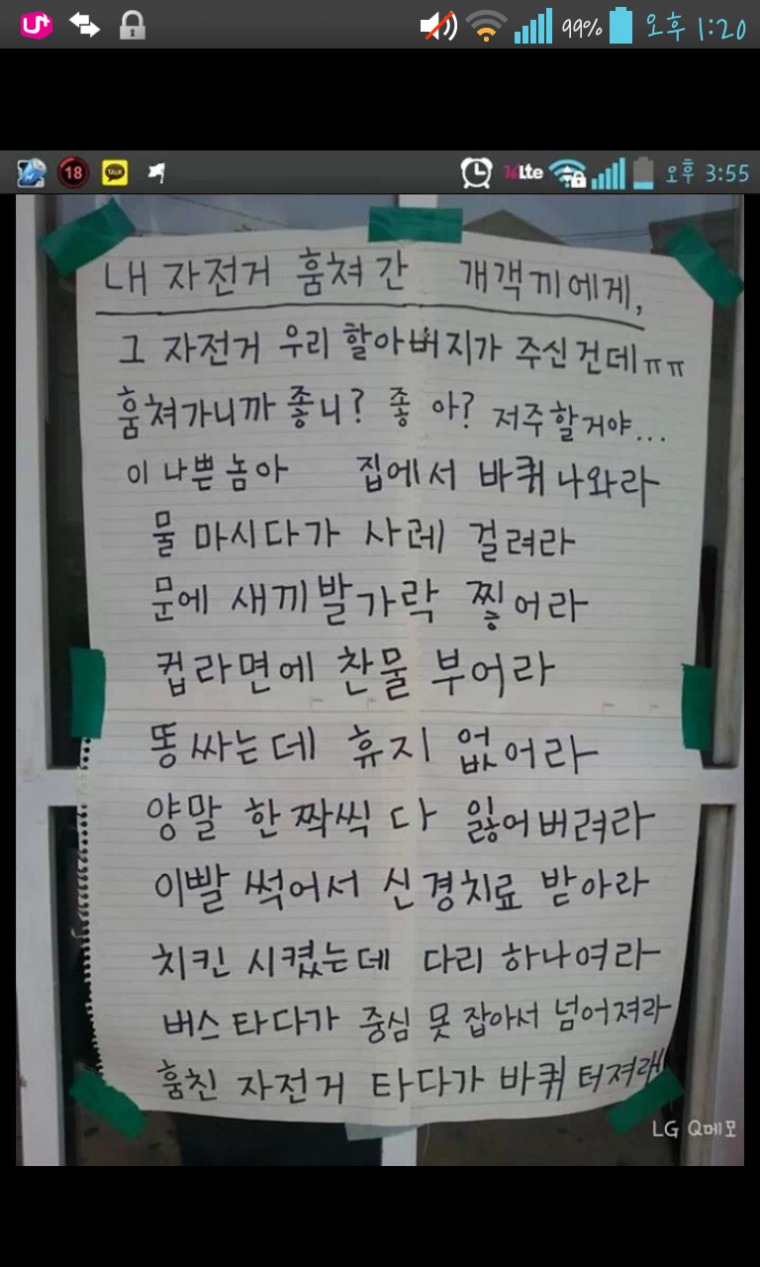 U+ 99% 오후 1:20
18 TALK Lte 오후 3:55
내 자전거 훔쳐간 개객끼에게,
그 자전거 우리 할아버지가 주신건데ㅠㅠ
훔쳐가니까 좋니? 좋아? 저주할거야...
이 나쁜놈아 집에서 바퀴 나와라
물 마시다가 사레 걸려라
문에 새끼발가락 찧어라
컵라면에 찬물 부어라
똥싸는데 휴지 없어라
양말 한짝씩 다 잃어버려라
이빨 썩어서 신경치료 받아라
치킨 시켰는데 다리 하나여라
버스타다가 중심 못 잡아서 넘어져라
훔친 자전거 타다가 바퀴 터져라!
LG Q메모